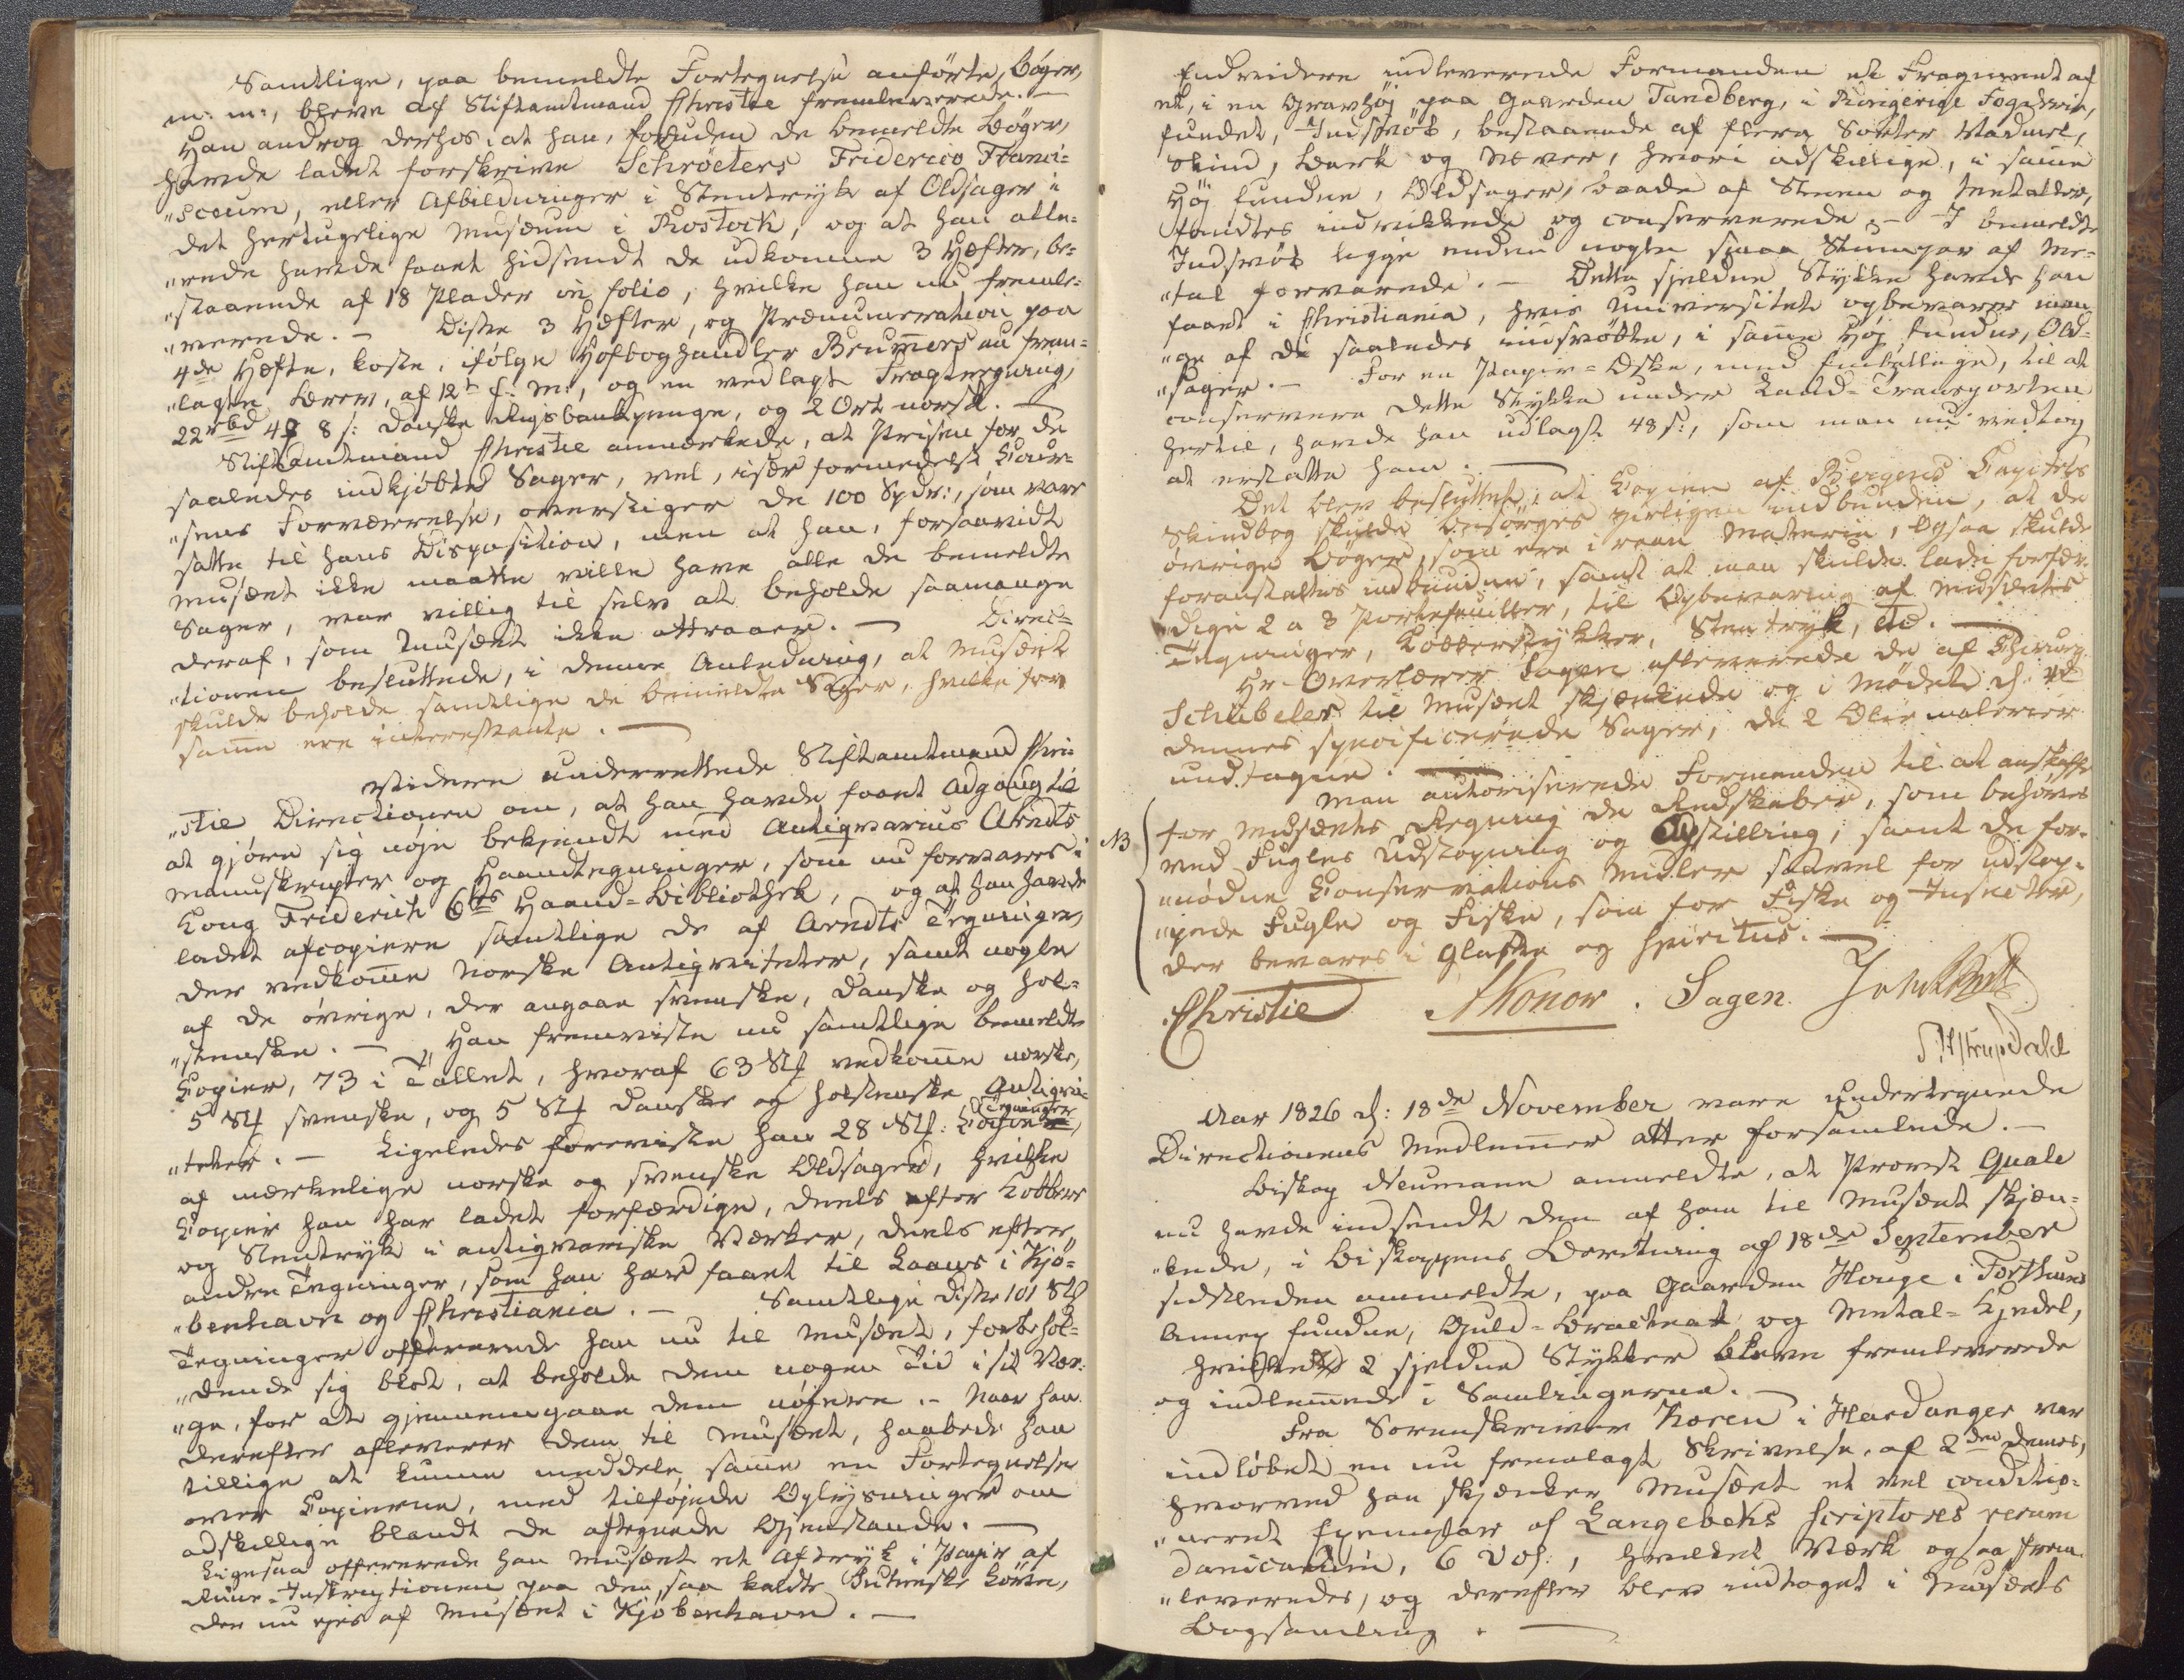 Samtlige, paa bemeldte Fortegnelse anførte, Bøger,
m: m:, bleve af Stiftamtmand Christie fremleverede. —
Han androg derhos: at han, foruden de bemeldte Bøger,
havde ladet forskrive Schröeters Friderico Franci=
„sceum, eller Afbildninger i Steentryk af Oldsager i
det hertugelige Musæum i Rostock, og at han alle=
„rede havde faaet hidsendt de udkomne 3 Hæfter, be=
„staaende af 18 Plader in folio, hvilke han nu fremle=
„verede. — Disse 3 Hæfter, og Prænumeration paa
4de Hæfte, koste, ifølge Hofboghandler Brummers nu frem=
„lagte Brev, af 12te f: M:, og en vedlagt Fragtregning,
22 rbd 4 ₰ 8 s: danske Rigsbankpenge, og 2 Ort norsk. —
Stiftamtmand Christie anmærkede, at Prisen for de
saaledes indkjøbte Sager, vel, især formedelst Cour=
„sens Forværrelse, overstiger de 100 Spdr:, som vare
satte til hans Disposition, men at han, forsaavidt
Musæet ikke maatte ville have alle de bemeldte
Sager, var villig til selv at beholde saamange
deraf, som Musæet ikke attraaer. — Direc=
„tionen besluttede, i denne Anledning, at Musæet
skulde beholde samtlige de bemeldte Sager, hvilke for
samme ere interessante. —
Videre underrettede Stiftamtmand Chri=
„stie Directionen om, at han havde faaet Adgang til
at gjøre sig nøje bekjendt med Antiqvarius Arndts
Manuskripter og Haandtegninger, som nu forvares i
Kong Friderich 6tes Haand=Bibliothek, og at han havde
ladet afcopiere samtlige de af Arndts Tegninger,
der vedkomme norske Antiqviteter, samt nogle
af de øvrige, der angaae svenske, danske og hol=
„stenske. — Han fremviste nu samtlige bemeldte
Copier, 73 i Tallet, hvoraf 63 Stk vedkomme norske,
5 Stk svenske, og 5 Stk danske og holstenske Antiqvi=
„teter. — Ligeledes foreviste han 28 Stk: Tegninger
af mærkelige norske og svenske Oldsager, hvilke
Copier han har ladet forfærdige, deels efter Kobbere
og Steentryk i antiqvariske Værker, deels efter
andre Tegninger, som han har faaet til Laans i Kjö=
„benhavn og Christiania. — Samtlige disse 101 Stk
Tegninger offererede han nu til Musæet, forbehol=
„dende sig blot, at beholde dem nogen Tid i sit Vær=
„ge, for at gjennemgaae dem nøjere. — Naar han
derefter afleverer dem til Musæet, haabede han
tillige at kunne meddele samme en Fortegnelse
over Copierne, med tilføjede Oplysninger om
adskillige blandt de aftegnede Gjenstande. —
Ligesaa offererede han Musæet et Aftryk i Papir af
Rune=Inskriptionen paa den, saa kaldte Løve,
der nu ejes af Musæet i Kjöbenhavn. —
Endvidere indleverede Formanden et Fragment af
et, i en Gravhøj paa Gaarden Tandberg, i Ringeriges Fogderie,
fundet, Indsvøb, bestaaende af flere Sorter Vadmel,
Skind, Bark og Næver, hvori adskillige, i samme
Høj fundne, Oldsager, baade af Steen og Metaller,
fandtes indviklede og conserverede; — I bemeldte
Indsvøb ligge endnu nogle smaa Stumper af Me=
„tal forvarede. — Dette sjeldne Stykke havde han
faaet i Christiania, hvis Universitet opbevarer man=
„ge af de saaledes indsvøbte, i samme Høj fundne, Old=
„sager. — For en Papir=Æske, med Emballage, til at
conservere dette Stykke under Land=Transporten
hertil, havde han udlagt 48 s:, som man nu vedtog
at erstatte ham. —
Det blev besluttet, at Copien af Bergens Capitels
Skindbog skulde besørges zirligen indbunden, at de
øvrige Bøger, som ere i raae Materie, ogsaa skulde
foranstaltes indbundne, samt at man skulde lade forfær=
„dige 2 a 3 Portefeuiller, til Opbevaring af Musæets
Tegninger, Kobberstykker, Steentryk, etc. —
Hr. Overlærer Sagen afleverede de af Chirurg
Schübeler til Musæet skjænkede og i Mødet d. 4de
dennes specificerede Sager, de 2 Olie malerier
undtagne. —
NB
Man autoriserede Formanden til at anskaffe
for Musæets Regning de Redskaber, som behøves
ved Fugles Udstopning og Opstilling, samt de for=
„nødne Conservations Midler saavel for udstop=
„pede Fugle og Fiske, som for Fiske og Insecter,
der bevares i Glasse og Spiritus. —
Christie Konow. Sagen.
Aar 1826 d: 18de November vare undertegnede
Directionens Medlemmer atter forsamlede. —
Biskop Neumann anmeldte, at Provst Quale
nu havde indsendt den af ham til Musæet skjæn=
„kede, i Biskoppens Beretning af 18de September
sidstleden ommeldte, paa Gaarden Houge i Forthuns
Annex fundne, Guld=Bracteat og Metal=Kjedel,
hvilke 2 sjeldne Stykker bleve fremleverede
og indlemmede i Samlingerne. —
Fra Sorenskriver Koren i Hardanger var
indløbet en nu fremlagt Skrivelse, af 2den dennes,
hvorved han skjænker Musæet et vel conditio=
„neret Exemplar af Langebeks Scriptores rerum
danicarum, 6 Vol:, hvilket Værk ogsaa frem=
„leveredes, og derefter blev indtaget i Musæets
Bogsamling. —